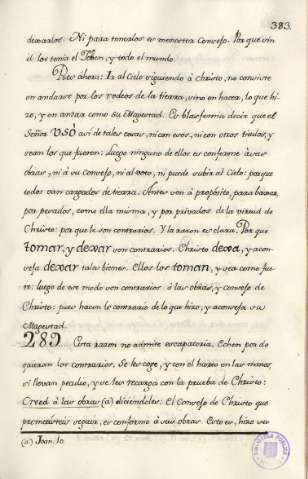 383.
dexarlos. Ni para tomalos es menester Consejo. Por que sin
él los toma el Joben, y todo el mundo.
Pero ahora: Ir al Cielo siguiendo à Christo, no consiste
en andarse por los rodeos de la tierra, sino en hacer, lo que hi-
zo, y en cantar como su Magestad. Es blasfemia decir que el
Señor USÓ asi de tales cosas, ni con esos, ni con otros titulos, y
sean los que fueren: luego ninguno de ellos es conforme à sus
obras, ni à su Consejo, ni al voto, ni puede subir al Cielo: porque
todos van cargados de tierra. Antes son à propósito, para baxar,
por pesados, como ella misma, y por privados de la virtud de
Christo: por que le son contrarios. Y la razon es clara. Por que
tomar, y dexar son contrarios. Christo dexa, y acon-
seja dexar tales bienes. Ellos los toman, y sea como fue-
re: luego de ese modo son contrarios à las obras, y Consejo de
Christo: pues hacen lo contrario de lo que hizo, y aconseja su
Magestad.
289 Esta razon no admite escapatoria. Echen por do
quieran los contrarios. Se les coge, y con el hurto en las manos,
si llevan peculio, y se les recarga con la prueba de Christo:
Creed à las obras (a) diciendoles: El Consejo de Christo que
prometisteis seguir, es conforme à sus obras. Esto es, hizo su
(a) Joan. 10.